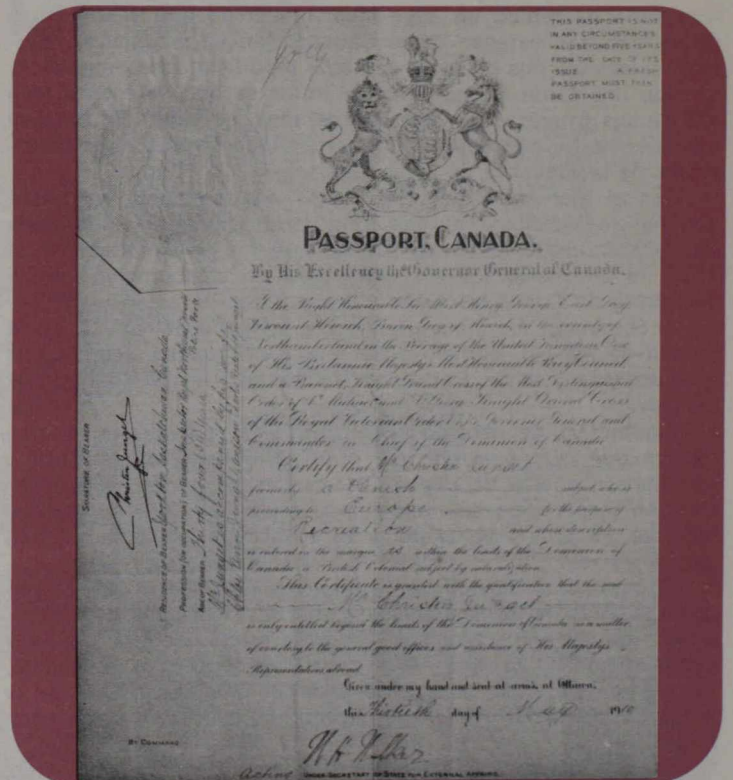 THIS PASSPORT IS NOT
IN ANY CIRCUMSTANCES
VALID BEYOND FIVE YEARS
FROM THE DATE OF ITS
ISSUE. A FRESH
PASSPORT MUST THEN
BE OBTAINED
PASSPORT. CANADA.
By His Excellency the Governor General of Canada.
I the Right Honourable Sir Albert Henry George, Earl Grey
Viscount Howick, Baron Grey of Howick, in the county of
Northumberland in the Peerage of the United Kingdom
of His Britannic Majesty's Most Honourable Privy Council
and a Baronet, Knight Grand Cross of the Most Distinguished
Order of St. Michael and St. George Knight Grand Cross
of the Royal Victorian Order Governor General and
Commander in Chief of the Dominion of Canada
Certify that Mr Christen
formerly a Danish subject, who is
proceeding to Europe for the purpose of
Recreation and whose description
is entered in the margin is within the limits of the Dominion of
Canada a British Colonial subject by naturalization.
This Certificate is granted with the qualification that the said
Mr Christen
is only entitled beyond the limits of the Dominion of Canada as a matter
of courtesy to the general good offices and assistance of His Majesty's
Representatives abroad
Given under my hand and seal at arms, at Ottawa,
this Thirtieth day of May 1910
BY COMMAND
Acting UNDER SECRETARY OF STATE FOR EXTERNAL AFFAIRS.
SIGNATURE OF BEARER
RESIDENCE OF BEARER Saskatchewan Canada
PROFESSION (OR OCCUPATION) OF BEARER Inspector Royal Northwest Mounted
Police Force
AGE OF BEARER Thirty four years
is accompanied by his wife